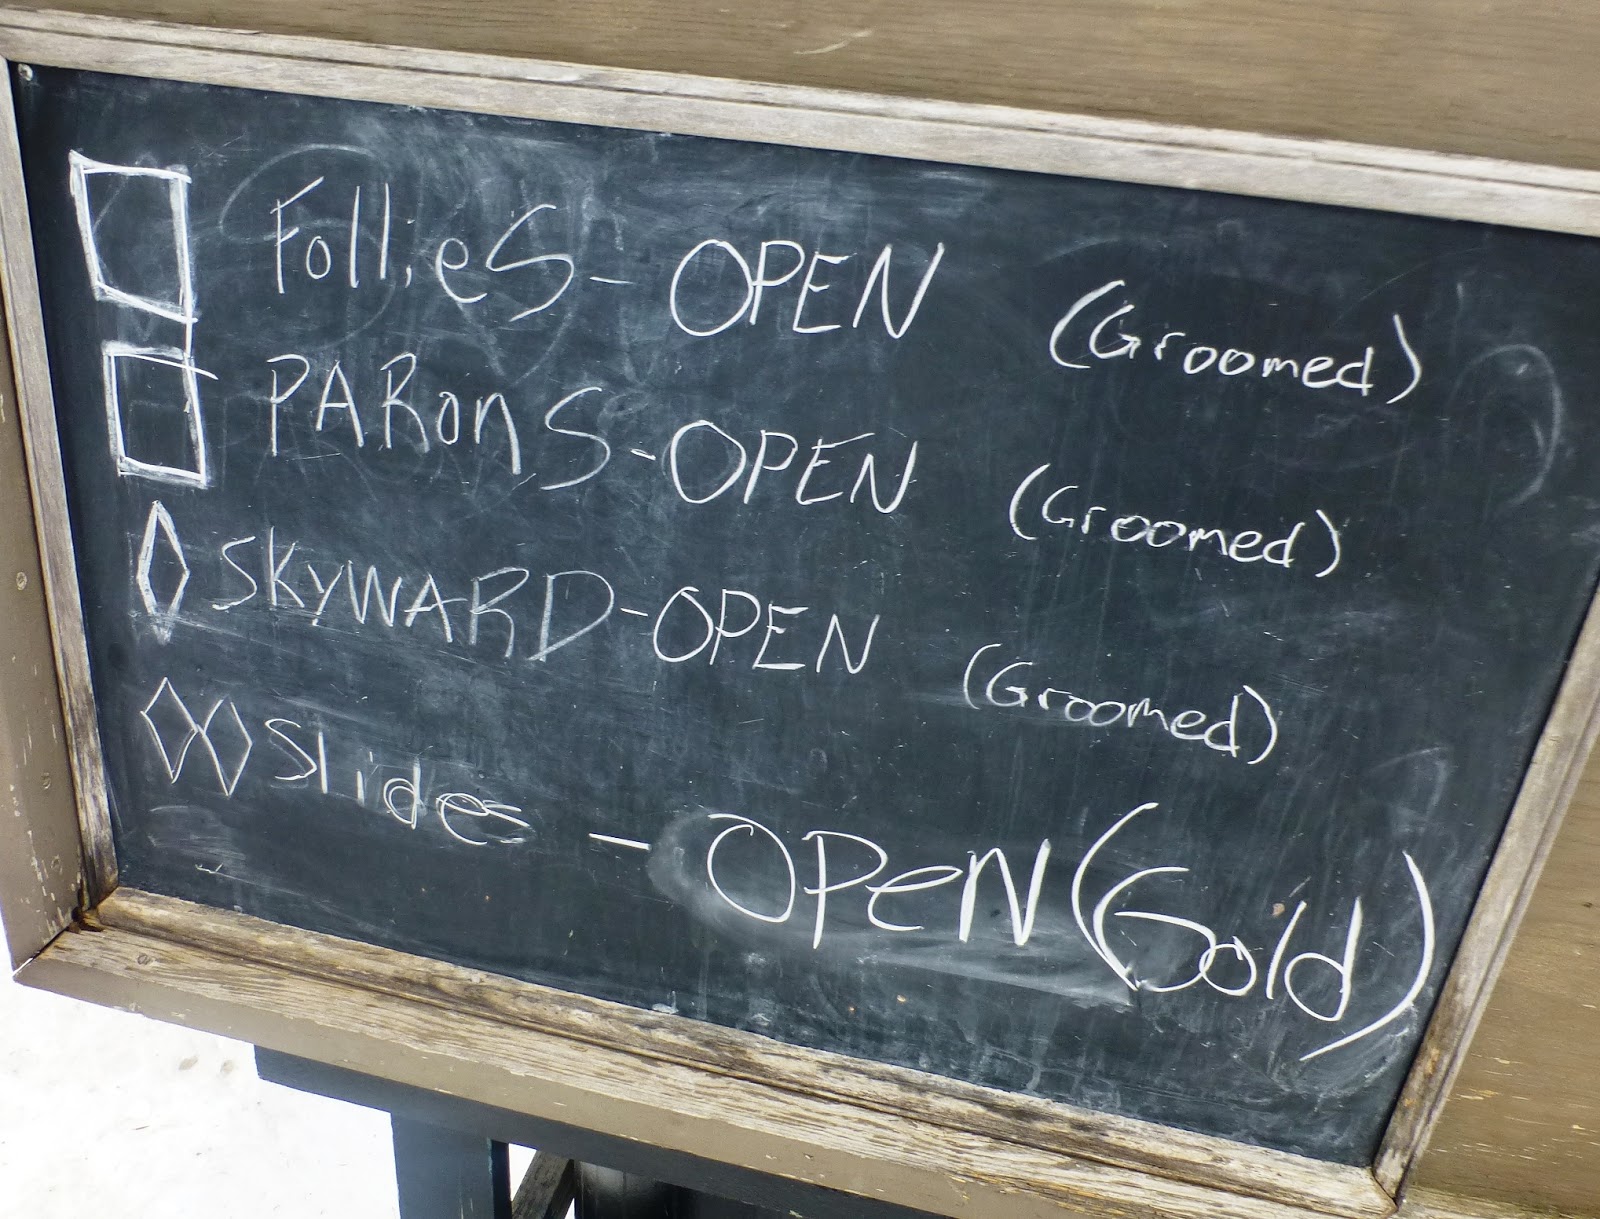 Follies - OPEN (Groomed)
PARonS - OPEN (Groomed)
SKyWARD - OPEN (Groomed)
Slides - OPeN (Gold)